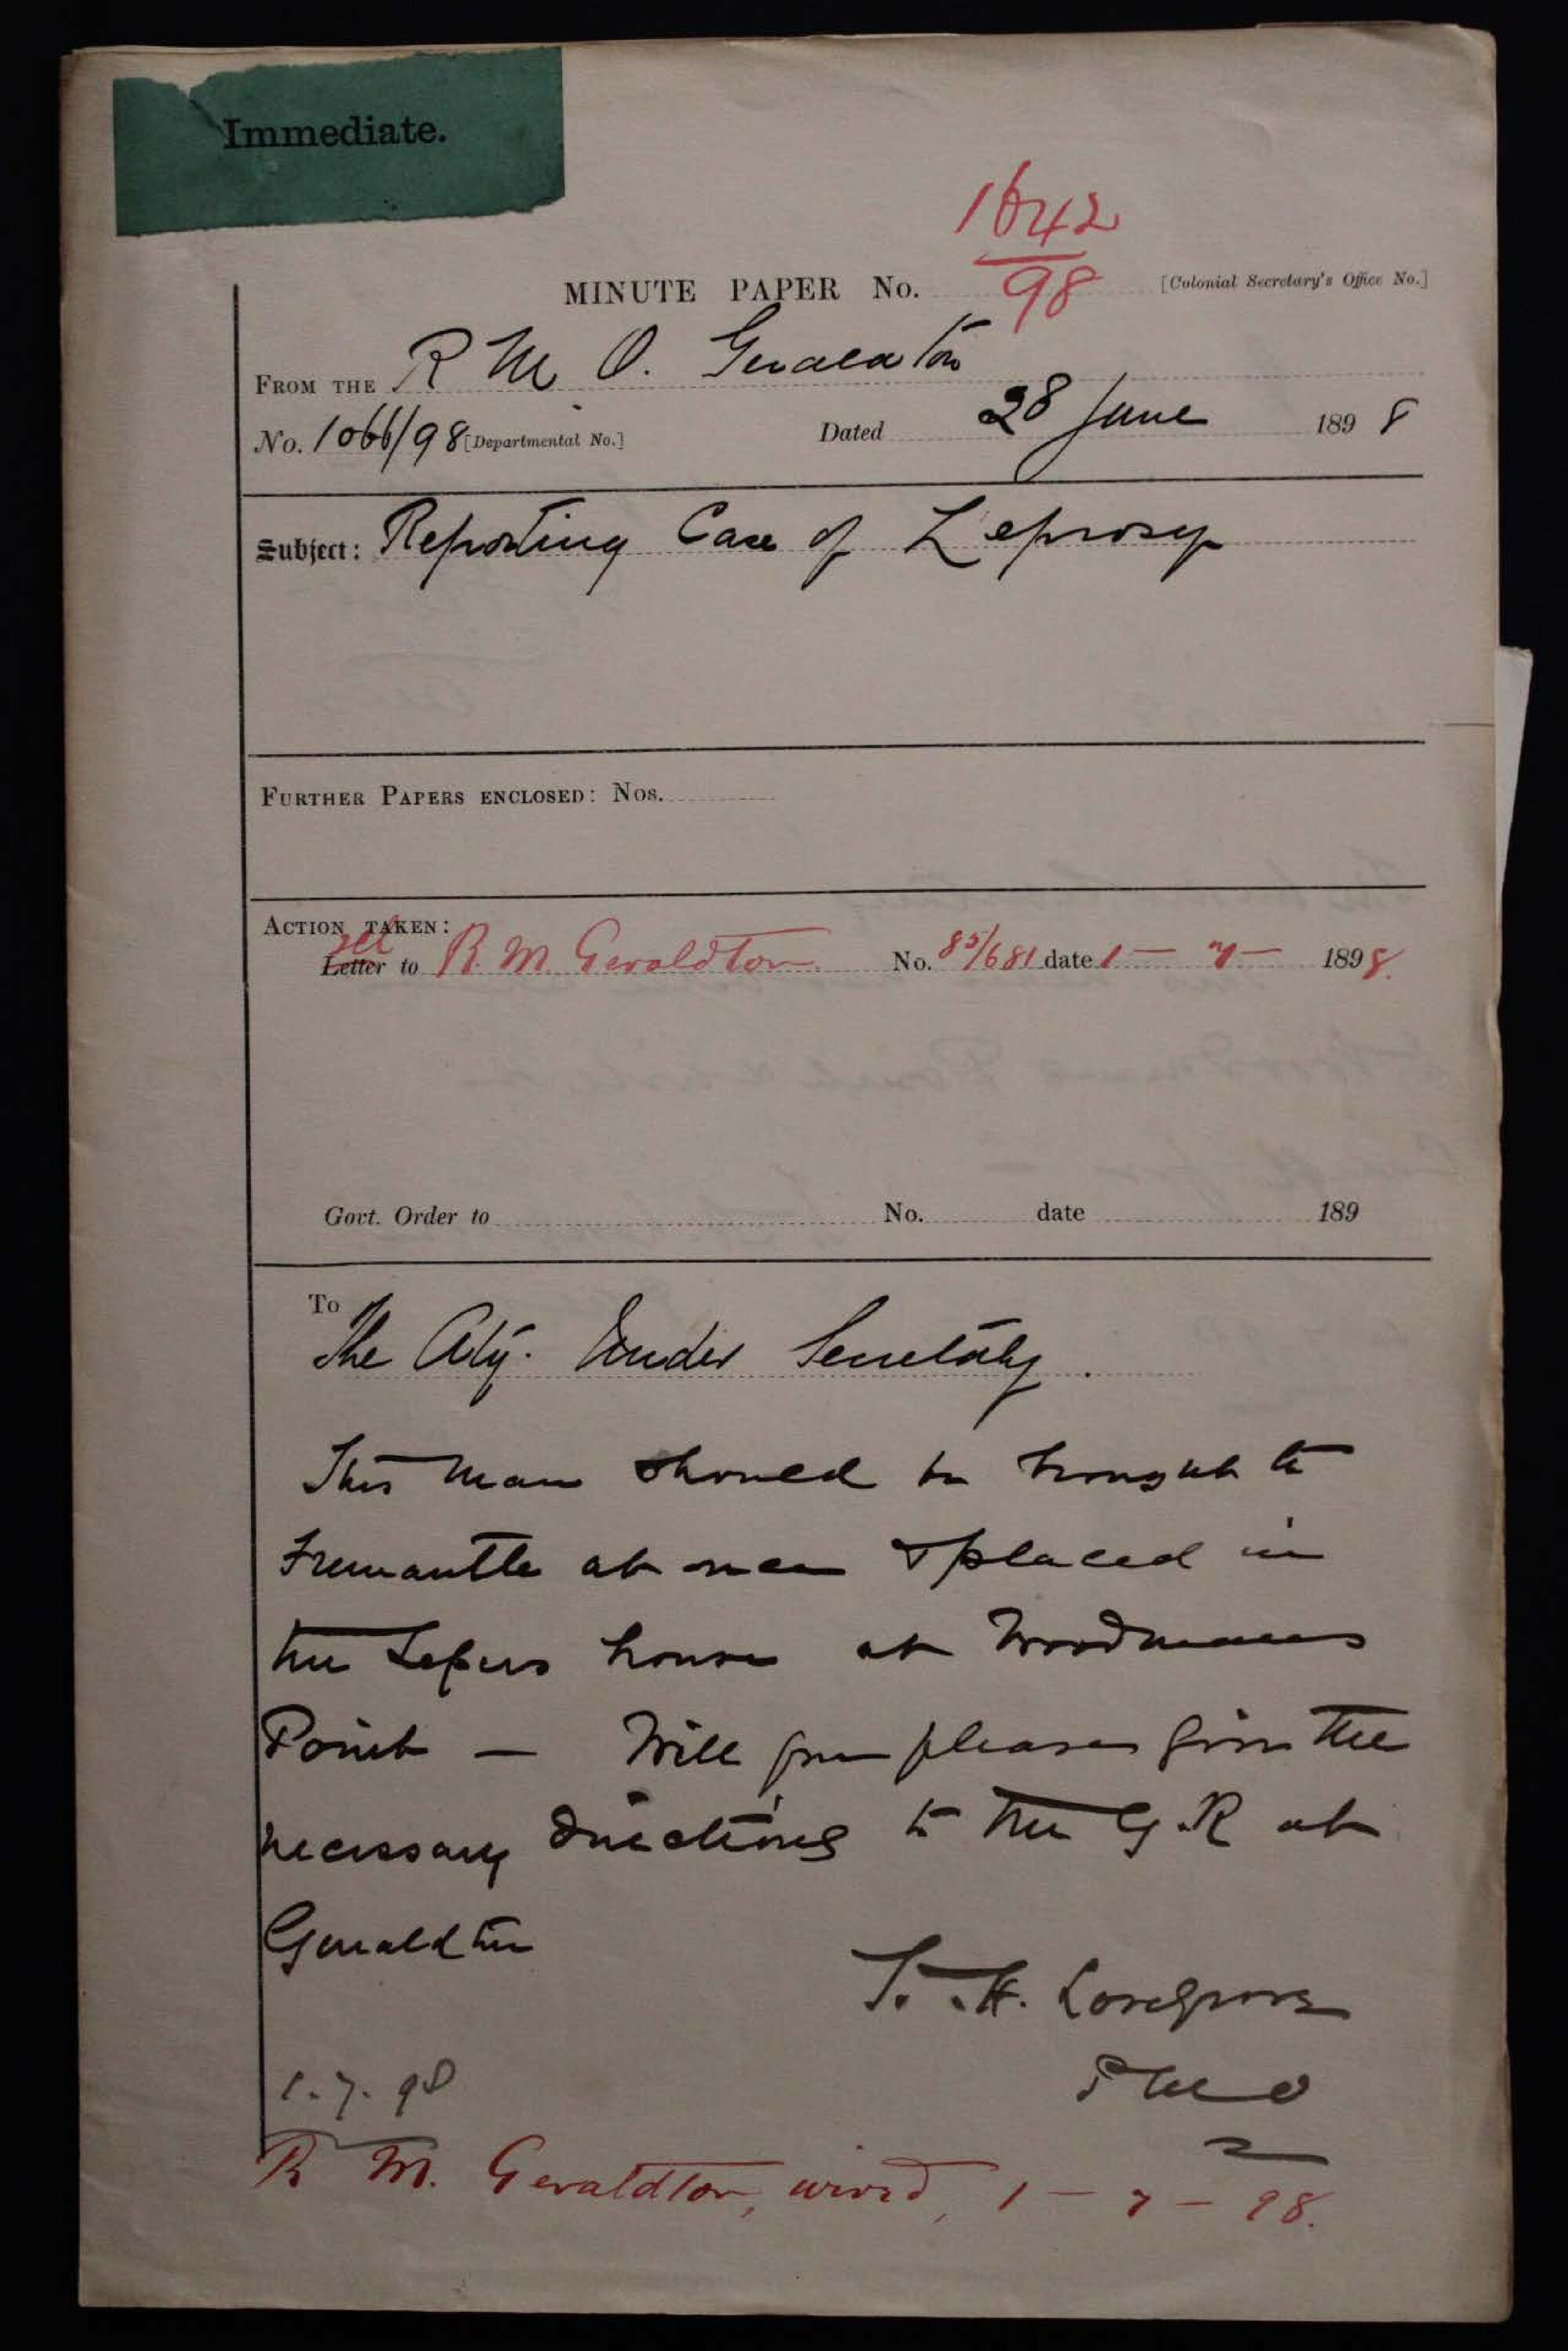 Immediate.
1642
98
MINUTE PAPER No.
[Colonial Secretary's Office No.]
FROM THE R M O. Geraldton
No. 1066/98 [Departmental No.] Dated 28 June 1898
Subject: Reporting Case of Leprosy
FURTHER PAPERS ENCLOSED: Nos.
ACTION TAKEN:
Tel
Letter to R. M. Geraldton No. 85/681 date 1 - 7 - 1898.
Govt. Order to No. date 189
To
The Actg. Under Secretary.
This man should be brought to
Fremantle at once & placed in
the Lepers house at Woodmans
Point — Will you please give the
necessary directions to the G.R at
Geraldton
T. H. Lovegrove
PMO
1.7.98
R M. Geraldton, wired, 1 - 7 - 98.